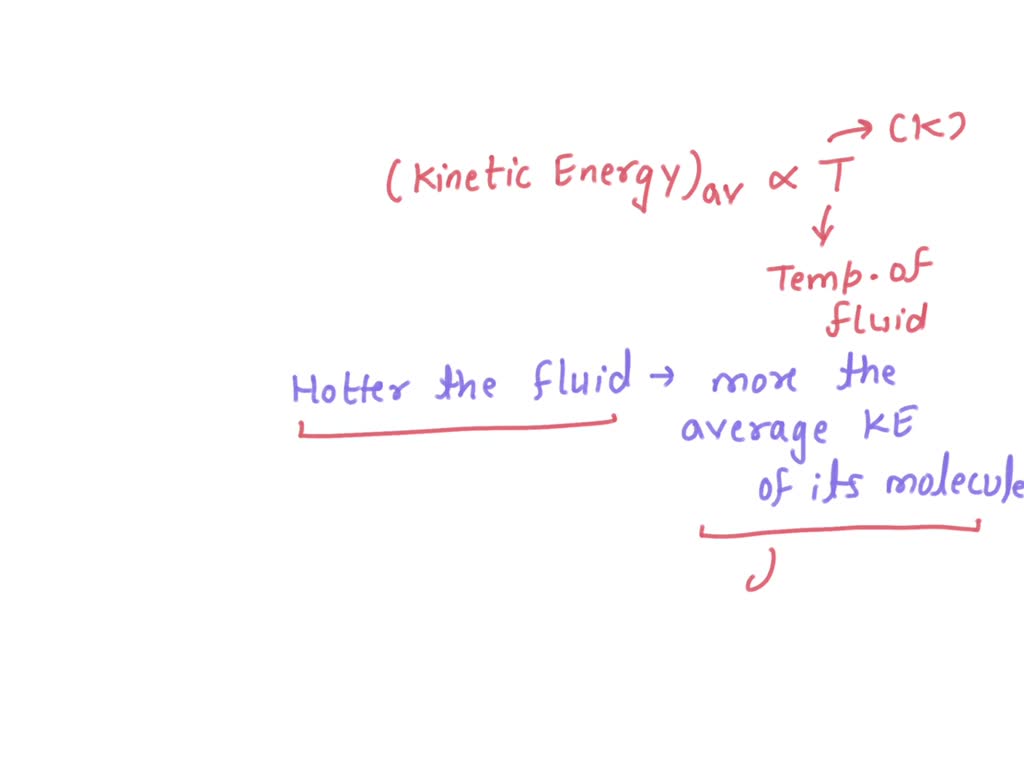 (Kinetic Energy)av ∝ T → (K)
↓
Temp. of
fluid
Hotter the fluid → more the
average KE
of its molecule